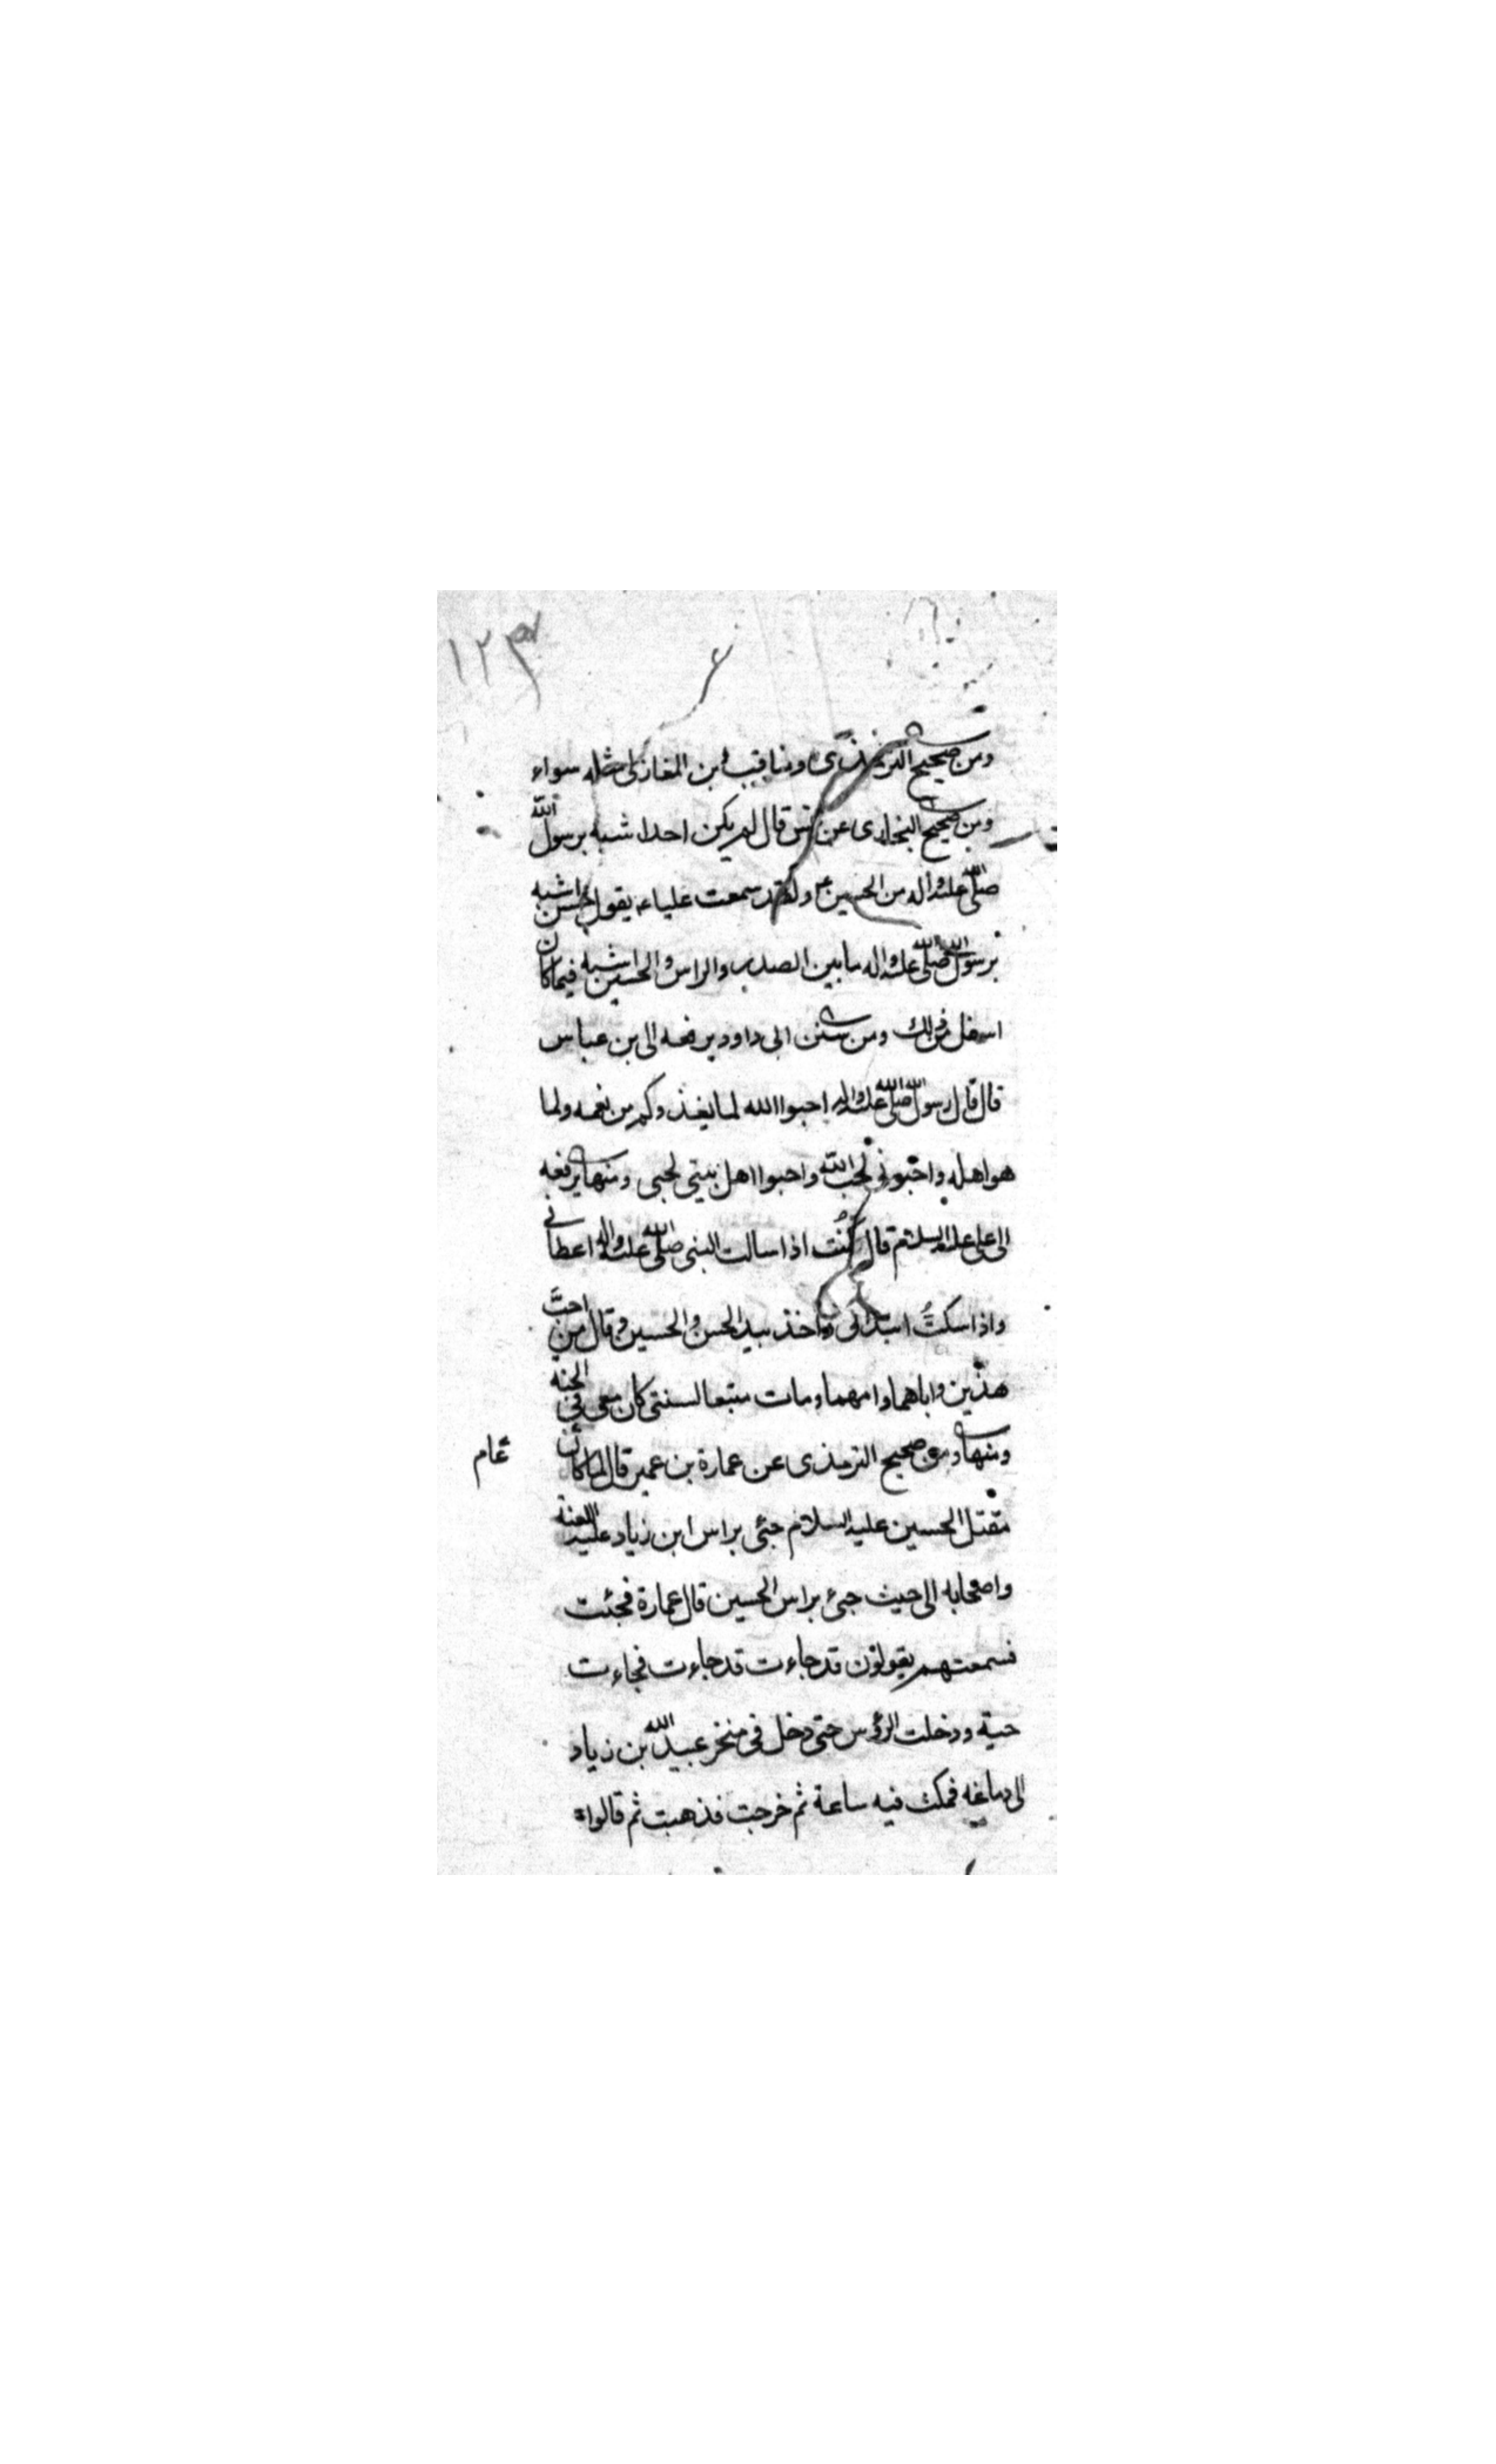 ١٢٣
ومن صحيح الترمذى ومناقب ابن المغازلى مثله سواء
ومن صحيح البخارى عن انس قال لم يكن احدا شبه برسول الله
صلى الله عليه واله من الحسين ولقد سمعت عليا ع يقول الحسن اشبه
برسول الله صلى الله عليه واله ما بين الصدر والراس والحسين اشبه فيما كان
اسفل من ذلك ومن سنن ابى داود يرفعه الى بن عباس
قال قال رسول الله صلى الله عليه واله احبوا الله لما يغذوكم من نعمه ولما
هو اهله واحبونى لحب الله واحبوا اهل بيتى لحبى ومنها يرفعه
الى على عليه السلام قال كُنْت اذا سالت النبى صلى الله عليه واله اعطانى
واذا سكتُّ ابتدانى واخذ بيد الحسن والحسين وقال من احبَّ
هذين واباهما وامهما ومات متبعا لسنتى كان معى فى الجنه
ومنها ومن صحيح الترمذى عن عمارة بن عمير قال لما كان
عام
مقتل الحسين عليه السلام جئى براس ابن زياد عليه اللعنة
واصحابه الى حيث جئ براس الحسين قال عمارة فجئت
فسمعتهم يقولون قد جاءت قد جاءت فجاءت
حية ودخلت الرؤس حتى دخل فى منخر عبيد الله بن زياد
الى دماغه فمكث فيه ساعة ثم خرجت فذهبت ثم قالوا